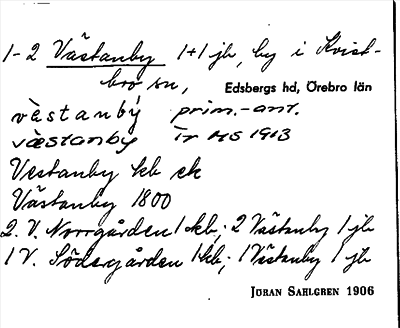 1-2 Västanby 1+1 jb, by i Kvist-
bro sn, Edsbergs hd, Örebro län
vèstanbý prim.-ant.
væstanby Ir HS 1913
Vestanby kb ek
Västanby 1800
2. V. Norrgården 1 kb; 2 Västanby 1 jb
1 V. Södergården 1 kb; 1 Västanby 1 jb
JÖRAN SAHLGREN 1906